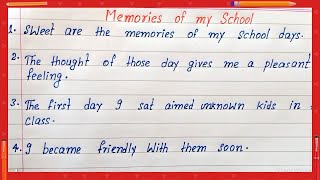 Memories of my School
1. Sweet are the memories of my school days.
2. The thought of those day gives me a pleasant
feeling.
3. The first day I sat aimed unknown kids in
class.
4. I became friendly with them soon.